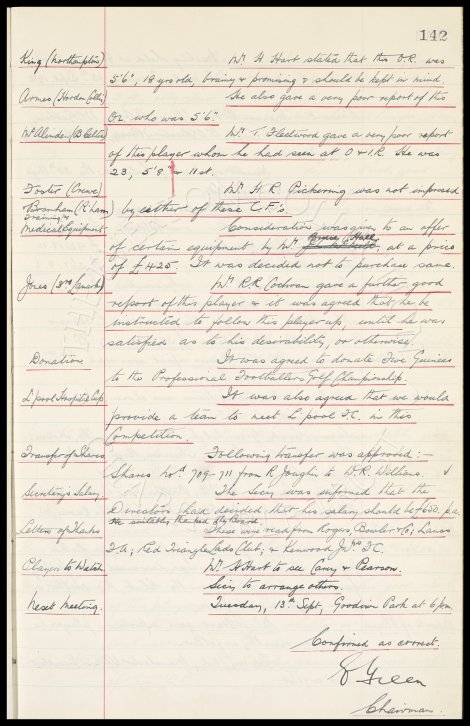 142
King (Northampton) Mr. H Hart stated that this O.R. was
5'6", 19 yrs old, brainy & promising & should be kept in mind.
Armes (Horden Collis) He also gave a very poor report of this
OL who was 5'6".
McAlinden (B. Celtic) Mr. T. Fleetwood gave a very poor report
of this player whom he had seen at O & I.R. He was
23, 5'8" or 11 st.
Foster (Crewe) Mr. H.R. Pickering was not impressed
Bramham ( ) by either of these C.F's.
Training &
Medical Equipment Consideration was given to an offer
of certain equipment by Mr. Bruce Hall at a price
of £425. It was decided not to purchase same.
Jones (3rd Lanark) Mr. R.R. Cochran gave a further good
report of this player & it was agreed that he be
instructed to follow this player up, until he was
satisfied as to his desirability, or otherwise.
Donations It was agreed to donate Five Guineas
to the Professional Footballers Golf Championship.
L'pool Hospital Cup It was also agreed that we would
provide a team to meet L'pool F.C. in this
Competition.
Transfer of Shares Following transfer was approved:-
Shares Nos. 709-711 from R. Joughin to D.R. Williams.
Secretary's Salary The Secy was informed that the
Directors had decided that his salary should be £ p.a.
He suitably thanked the Board.
Letters of Thanks These were read from Rogers, Bowler & Co; Lancs
F.A; Red Triangle Lads Club; & Kenwood Jnrs F.C.
Players to Watch Mr. H Hart to see Carey & Pearson.
Secy to arrange others.
Next Meeting. Tuesday, 13th Sept, Goodison Park at 6 pm.
Confirmed as correct.
Green
Chairman.